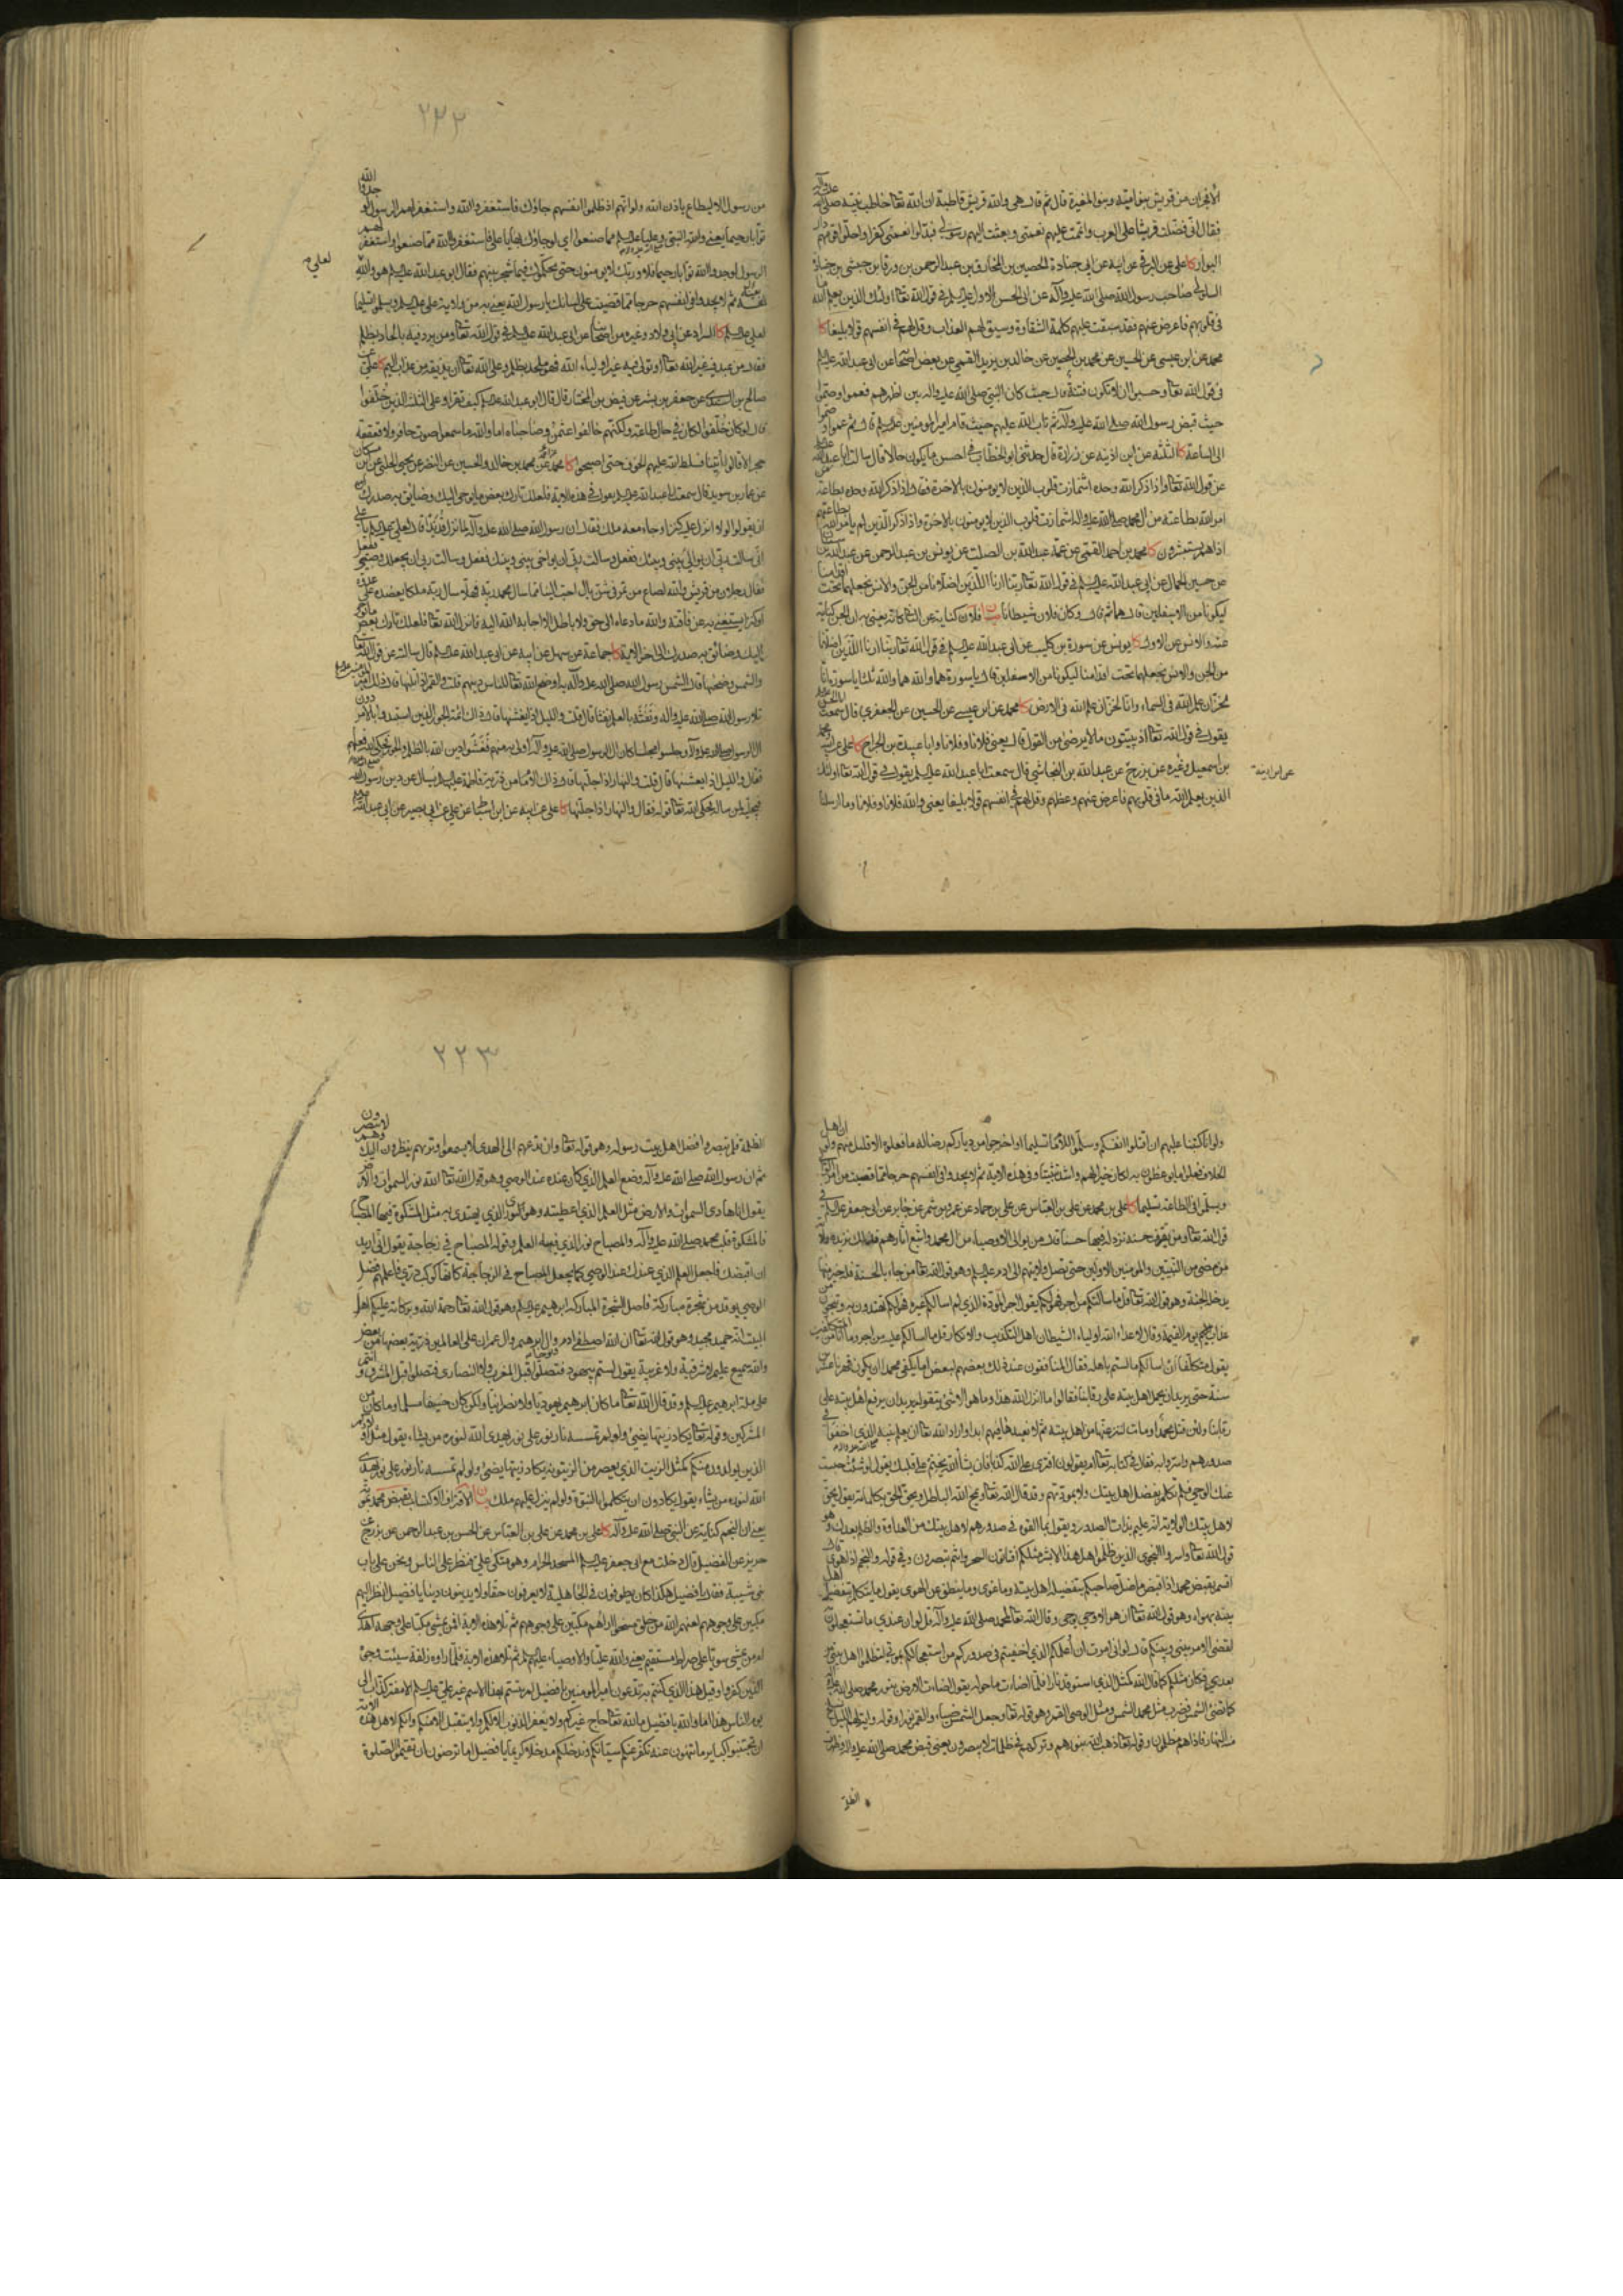 الأفجران من قريش بنو امية وبنو المغيرة قال ثم قال هى والله قريش قاطبة ان الله تعا خاطب نبيه صلى الله عليه وآله
فقال انى فضلت قريشا على العرب واتممت عليهم نعمتى وبعثت اليهم رسولى فبدلوا نعمتى كفرا واحلوا قومهم دار
البوار كا على عن البرقى عن ابيه عن ابى جنادة الحصين بن المخارق بن عبد الرحمن بن ورقا بن حبشى بن جنادة
السلولى صاحب رسول الله صلى الله عليه وآله عن ابى الحسن الاول عليه السلام فى قول الله تعا اولئك الذين يعلم الله ما
فى قلوبهم فاعرض عنهم فقد سبقت عليهم كلمة الشقاوة وسبق لهم العذاب وقل لهم فى انفسهم قولا بليغا كا
محمد عن ابن عيسى عن الحسين عن محمد بن الحصين عن خالد بن يزيد القمى عن بعض اصحابه عن ابى عبد الله عليه السلام
فى قول الله تعا وحسبوا ان لا تكون فتنة قال حيث كان النبى صلى الله عليه وآله بين اظهرهم فعموا وصموا
حيث قبض رسول الله صلى الله عليه وآله ثم تاب الله عليهم حيث قام امير المؤمنين عليه السلام قال ثم عموا وصموا
الى الساعة كا الثلثة عن ابن اذينه عن زرارة قال حدثنى ابو الخطاب فى احسن ما يكون حالا قال سالت ابا عبد الله عليه السلام
عن قول الله تعا واذا ذكر الله وحده اشمازت قلوب الذين لا يؤمنون بالاخرة فقال واذا ذكر الله وحده بطاعة من
امر الله بطاعته من ال محمد صلى الله عليه وآله اشمازت قلوب الذين لا يؤمنون بالاخرة واذا ذكر الذين لم يأمر الله بطاعتهم
اذا هم يستبشرون كا محمد بن احمد القمى عن عمه عبد الله بن الصلت عن يونس بن عبد الرحمن عن عبد الله بن سنان
عن حسين الجمال عن ابى عبد الله عليه السلام فى قول الله تعا ربنا ارنا اللذين اضلانا من الجن والانس نجعلهما تحت اقدامنا
ليكونا من الاسفلين قال هما ثم قال وكان فلان شيطانا
منه والانس عن الاول كا يونس عن سورة بن كليب عن ابى عبد الله عليه السلام فى قول الله تعا ربنا ارنا اللذين اضلانا
من الجن والانس نجعلهما تحت اقدامنا ليكونا من الاسفلين قال يا سورة هما والله هما والله ثلثا يا سورة انا
لخزان علم الله فى السماء وانا لخزان علم الله فى الارض كا محمد عن ابن عيسى عن الحسين عن الجعفرى قال سمعت ابا الحسن عليه السلام
يقول فى قول الله تعا اذ يبيتون ما لا يرضى من القول قال يعنى فلانا وفلانا وابا عبيدة بن الجراح كا على عن ابيه محمد
بن اسمعيل وغيره عن بزرج عن عبد الله بن النجاشى قال سمعت ابا عبد الله عليه السلام يقول فى قول الله تعا اولئك
الذين يعلم الله ما فى قلوبهم فاعرض عنهم وعظهم وقل لهم فى انفسهم قولا بليغا يعنى والله فلانا وفلانا وما ارسلنا
عن ابن اذينة
٢٢٢
من رسول الا ليطاع باذن الله ولو انهم اذ ظلموا انفسهم جاؤك فاستغفروا الله واستغفر لهم الرسول لوجدوا الله
توابا رحيما يعنى والله النبى وعليا عليه السلام مما صنعوا اى لو جاؤك بها يا على فاستغفروا الله مما صنعوا واستغفر لهم
الرسول لوجدوا الله توابا رحيما فلا وربك لا يؤمنون حتى يحكموك فيما شجر بينهم فقال ابو عبد الله عليه السلام هو والله
لعلى
بعينه ثم لا يجدوا فى انفسهم حرجا مما قضيت على لسانك يا رسول الله يعنى به من ولاية على عليه السلام ويسلموا تسليما
لعلى عليه السلام كا السراد عن ابى ولاد وغيره من اصحابنا عن ابى عبد الله عليه السلام فى قول الله تعا ومن يرد فيه بالحاد بظلم
فقال من عبد فيه غير الله تعا او تولى فيه غير اولياء الله فهو ملحد بظلم وعلى الله تعا ان يذيقه من عذاب اليم كا على عن
صالح بن السندى عن جعفر بن بشير عن فيض بن المختار قال قال ابو عبد الله عليه السلام كيف تقرا وعلى الثلثة الذين خلفوا
قال لو كان خلفوا لكان فى حال طاعة ولكنهم خالفوا عثمن وصاحباه اما والله ما سمعوا صوت حافر ولا قعقعة
حجر الا قالوا أتينا فسلط الله عليهم الخوف حتى اصبحوا كا محمد عن محمد بن خالد والحسين عن النضر عن يحيى الحلبى عن ابن مسكان
عن عمار بن سويد قال سمعت ابا عبد الله عليه السلام يقول فى هذه الاية فلعلك تارك بعض ما يوحى اليك وضائق به صدرك
ان يقولوا لولا انزل عليه كنز او جاء معه ملك فقال ان رسول الله صلى الله عليه وآله لما نزل قديد قال لعلى عليه السلام يا على
انى سالت ربى ان يوالى بينى وبينك ففعل وسالت ربى ان يواخى بينى وبينك ففعل وسالت ربى ان يجعلك وصيى ففعل
فقال رجلان من قريش والله لصاع من تمر فى شن بال احب الينا مما سال محمد ربه فهلا سال ربه ملكا يعضده على عدوه
او كنزا يستغنى به عن فاقته والله ما دعاه الى حق ولا باطل الا اجابه الله اليه فانزل الله تعا فلعلك تارك بعض ما يوحى
اليك وضائق به صدرك الى اخر الاية كا جماعة عن سهل عن ابيه عن ابى عبد الله عليه السلام قال سالته عن قول الله تعا
والشمس وضحيها قال الشمس رسول الله صلى الله عليه وآله به اوضح الله تعا للناس دينهم قلت والقمر اذا تليها قال ذلك امير المؤمنين عليه السلام
تلا رسول الله صلى الله عليه وآله ونفثه بالعلم نفثا قال قلت والليل اذا يغشيها قال ذاك ائمة الجور الذين استبدوا بالامر دون
ال الرسول صلى الله عليه وآله وجلسوا مجلسا كان ال الرسول صلى الله عليه وآله اولى به منهم فغشوا دين الله بالظلم والجور فحكى الله فعلهم
فقال والليل اذا يغشيها قال قلت والنهار اذا جليها قال ذاك الامام من ذرية فاطمة عليها السلام يسال عن دين رسول الله
فيجليه لمن ساله فحكى الله تعا قوله فقال والنهار اذا جليها كا على عن ابيه عن ابن اسباط عن على عن ابى بصير عن ابى عبد الله
ولو انا كتبنا عليهم ان اقتلوا انفسكم وسلموا للامام تسليما او اخرجوا من دياركم رضا له ما فعلوه الا قليل منهم ولو ان اهل
الخلاف فعلوا ما يوعظون به لكان خيرا لهم واشد تثبيتا وفى هذه الاية ثم لا يجدوا فى انفسهم حرجا مما قضيت من امر
ويسلموا فى الطاعة تسليما كا على بن محمد عن على بن العباس عن على بن حماد عن عمرو بن شمر عن جابر عن ابى جعفر عليه السلام فى
قول الله تعا ومن يقترف حسنة نزد له فيها حسنا قال من يوالى الاوصياء من ال محمد واتبع اثارهم فذلك نزيده ولاية
من مضى من النبيين والمؤمنين الاولين حتى يصل ولايتهم الى ادم عليه السلام وهو قول الله تعا من جاء بالحسنة فله خير منها
يدخل الجنة وهو قول الله تعا قل ما سالتكم من اجر فهو لكم يقول اجر المودة الذى لم اسالكم غيره فهو لكم تهتدون به وتنجون من
عذاب يوم القيمة وقال لاعداء الله اولياء الشيطان اهل التكذيب والانكار قل ما اسالكم عليه من اجر وما انا من المتكلفين
يقول متكلفا ان اسالكم ما لستم باهله فقال المنافقون عند ذلك بعضهم لبعض اما يكفى محمدا ان يكون قهرنا عشرين
سنة حتى يريد ان يحمل اهل بيته على رقابنا فقالوا ما انزل الله هذا وما هو الا شئ يتقوله يريد ان يرفع اهل بيته على
رقابنا ولئن قتل محمد او مات لننزعنها من اهل بيته ثم لا نعيدها فيهم ابدا واراد الله تعا ان يعلم نبيه الذى اخفوا فى
صدورهم واسروا به فقال فى كتابه تعا ام يقولون افترى على الله كذبا فان يشأ الله يختم على قلبك يقول لو شئت حبست
عنك الوحى فلم تكلم بفضل اهل بيتك ولا بمودتهم وقد قال الله تعا ويمح الله الباطل ويحق الحق بكلماته يقول الحق
لاهل بيتك الولاية انه عليم بذات الصدور ويقول بما القوه فى صدورهم لاهل بيتك من العداوة والظلم بعدك وهو
قول الله تعا واسروا النجوى الذين ظلموا هل هذا الا بشر مثلكم افتاتون السحر وانتم تبصرون وفى قوله والنجم اذا هوى قال
اقسم بقبض محمد اذا قبض ما ضل صاحبكم بتفضيله اهل بيته وما غوى وما ينطق عن الهوى يقول ما يتكلم بفضل اهل
بيته بهواه وهو قول الله تعا ان هو الا وحى يوحى وقال الله تعا لمحمد صلى الله عليه وآله قل لو ان عندى ما تستعجلون به
لقضى الامر بينى وبينكم قال لو انى امرت ان اعلمكم الذى اخفيتم فى صدوركم من استعجالكم بموتى لتظلموا اهل بيتى من
بعدى فكان مثلكم كما قال الله كمثل الذى استوقد نارا فلما اضاءت ما حوله يقول اضاءت الارض بنور محمد صلى الله عليه وآله
كما تضئ الشمس فضرب مثل محمد الشمس ومثل الوصى القمر وهو قوله تعا وجعل الشمس ضياء والقمر نورا وقوله واية لهم الليل نسلخ
منه النهار فاذا هم مظلمون وقوله تعا ذهب الله بنورهم وتركهم فى ظلمات لا يبصرون يعنى قبض محمد صلى الله عليه وآله وظهرت
الظلمة
٢٢٣
الظلمة فلم يبصروا فضل اهل بيت رسوله وهو قوله تعا وان تدعهم الى الهدى لا يسمعوا وتريهم ينظرون اليك وهم لا يبصرون
ثم ان رسول الله صلى الله عليه وآله وضع العلم الذى كان عنده عند الوصى وهو قول الله تعا الله نور السموات والارض
يقول انا هادى السموات والارض مثل العلم الذى اعطيته وهو النور الذى يهتدى به مثل المشكوة فيها المصباح
فالمشكوة قلب محمد صلى الله عليه وآله والمصباح نوره الذى فيه العلم وقوله المصباح فى زجاجة يقول انى اريد
ان اقبضك فاجعل العلم الذى عندك عند الوصى كما يجعل المصباح فى الزجاجة كانها كوكب درى فاعلمهم فضل
الوصى يوقد من شجرة مباركة فاصل الشجرة المباركة ابرهيم عليه السلام وهو قول الله تعا رحمة الله وبركاته عليكم اهل
البيت انه حميد مجيد وهو قول الله تعا ان الله اصطفى ادم ونوحا وال ابرهيم وال عمران على العالمين ذرية بعضها من بعض
والله سميع عليم لا شرقية ولا غربية يقول لستم بيهود فتصلوا قبل المغرب ولا النصارى فتصلوا قبل المشرق وانتم
على ملة ابرهيم عليه السلام وقد قال الله تعا ما كان ابرهيم يهوديا ولا نصرانيا ولكن كان حنيفا مسلما وما كان من
المشركين وقوله تعا يكاد زيتها يضئ ولو لم تمسسه نار نور على نور يهدى الله لنوره من يشاء يقول مثل اولادكم
الذين يولدون منكم كمثل الزيت الذى يعصر من الزيتونة يكاد زيتها يضئ ولو لم تمسسه نار نور على نور يهدى
الله لنوره من يشاء يقول يكادون ان يتكلموا بالنبوة ولو لم ينزل عليهم ملك بيان الاقتراف الاكتساب بقبض محمد
يعنى ان النجم كناية عن النبى صلى الله عليه وآله كا على بن محمد عن على بن العباس عن الحسن بن عبد الرحمن عن بزرج عن
حريز عن الفضيل قال دخلت مع ابى جعفر عليه السلام المسجد الحرام وهو متكئ على فنظر على الناس ونحن على باب
بنى شيبة فقال يا فضيل هكذا كان يطوفون فى الجاهلية لا يعرفون حقا ولا يدينون دينا يا فضيل انظر اليهم
مكبين على وجوههم لعنهم الله من خلق مسخوا بهم مكبين على وجوههم ثم تلا هذه الاية افمن يمشى مكبا على وجهه اهدى
امن يمشى سويا على صراط مستقيم يعنى والله عليا والاوصياء عليهم السلام ثم تلا هذه الاية فلما راوه زلفة سيئت وجوه
الذين كفروا وقيل هذا الذى كنتم به تدعون امير المؤمنين يا فضيل لم يتسم بهذا الاسم غير على عليه السلام الا مفتر كذاب الى
يوم الناس هذا اما والله يا فضيل ما لله تعا حاج غيركم ولا يغفر الذنوب الا لكم ولا يتقبل الا منكم وانكم لاهل هذه الاية
ان تجتنبوا كبائر ما تنهون عنه نكفر عنكم سيئاتكم وندخلكم مدخلا كريما يا فضيل اما ترضون ان تقيموا الصلوة